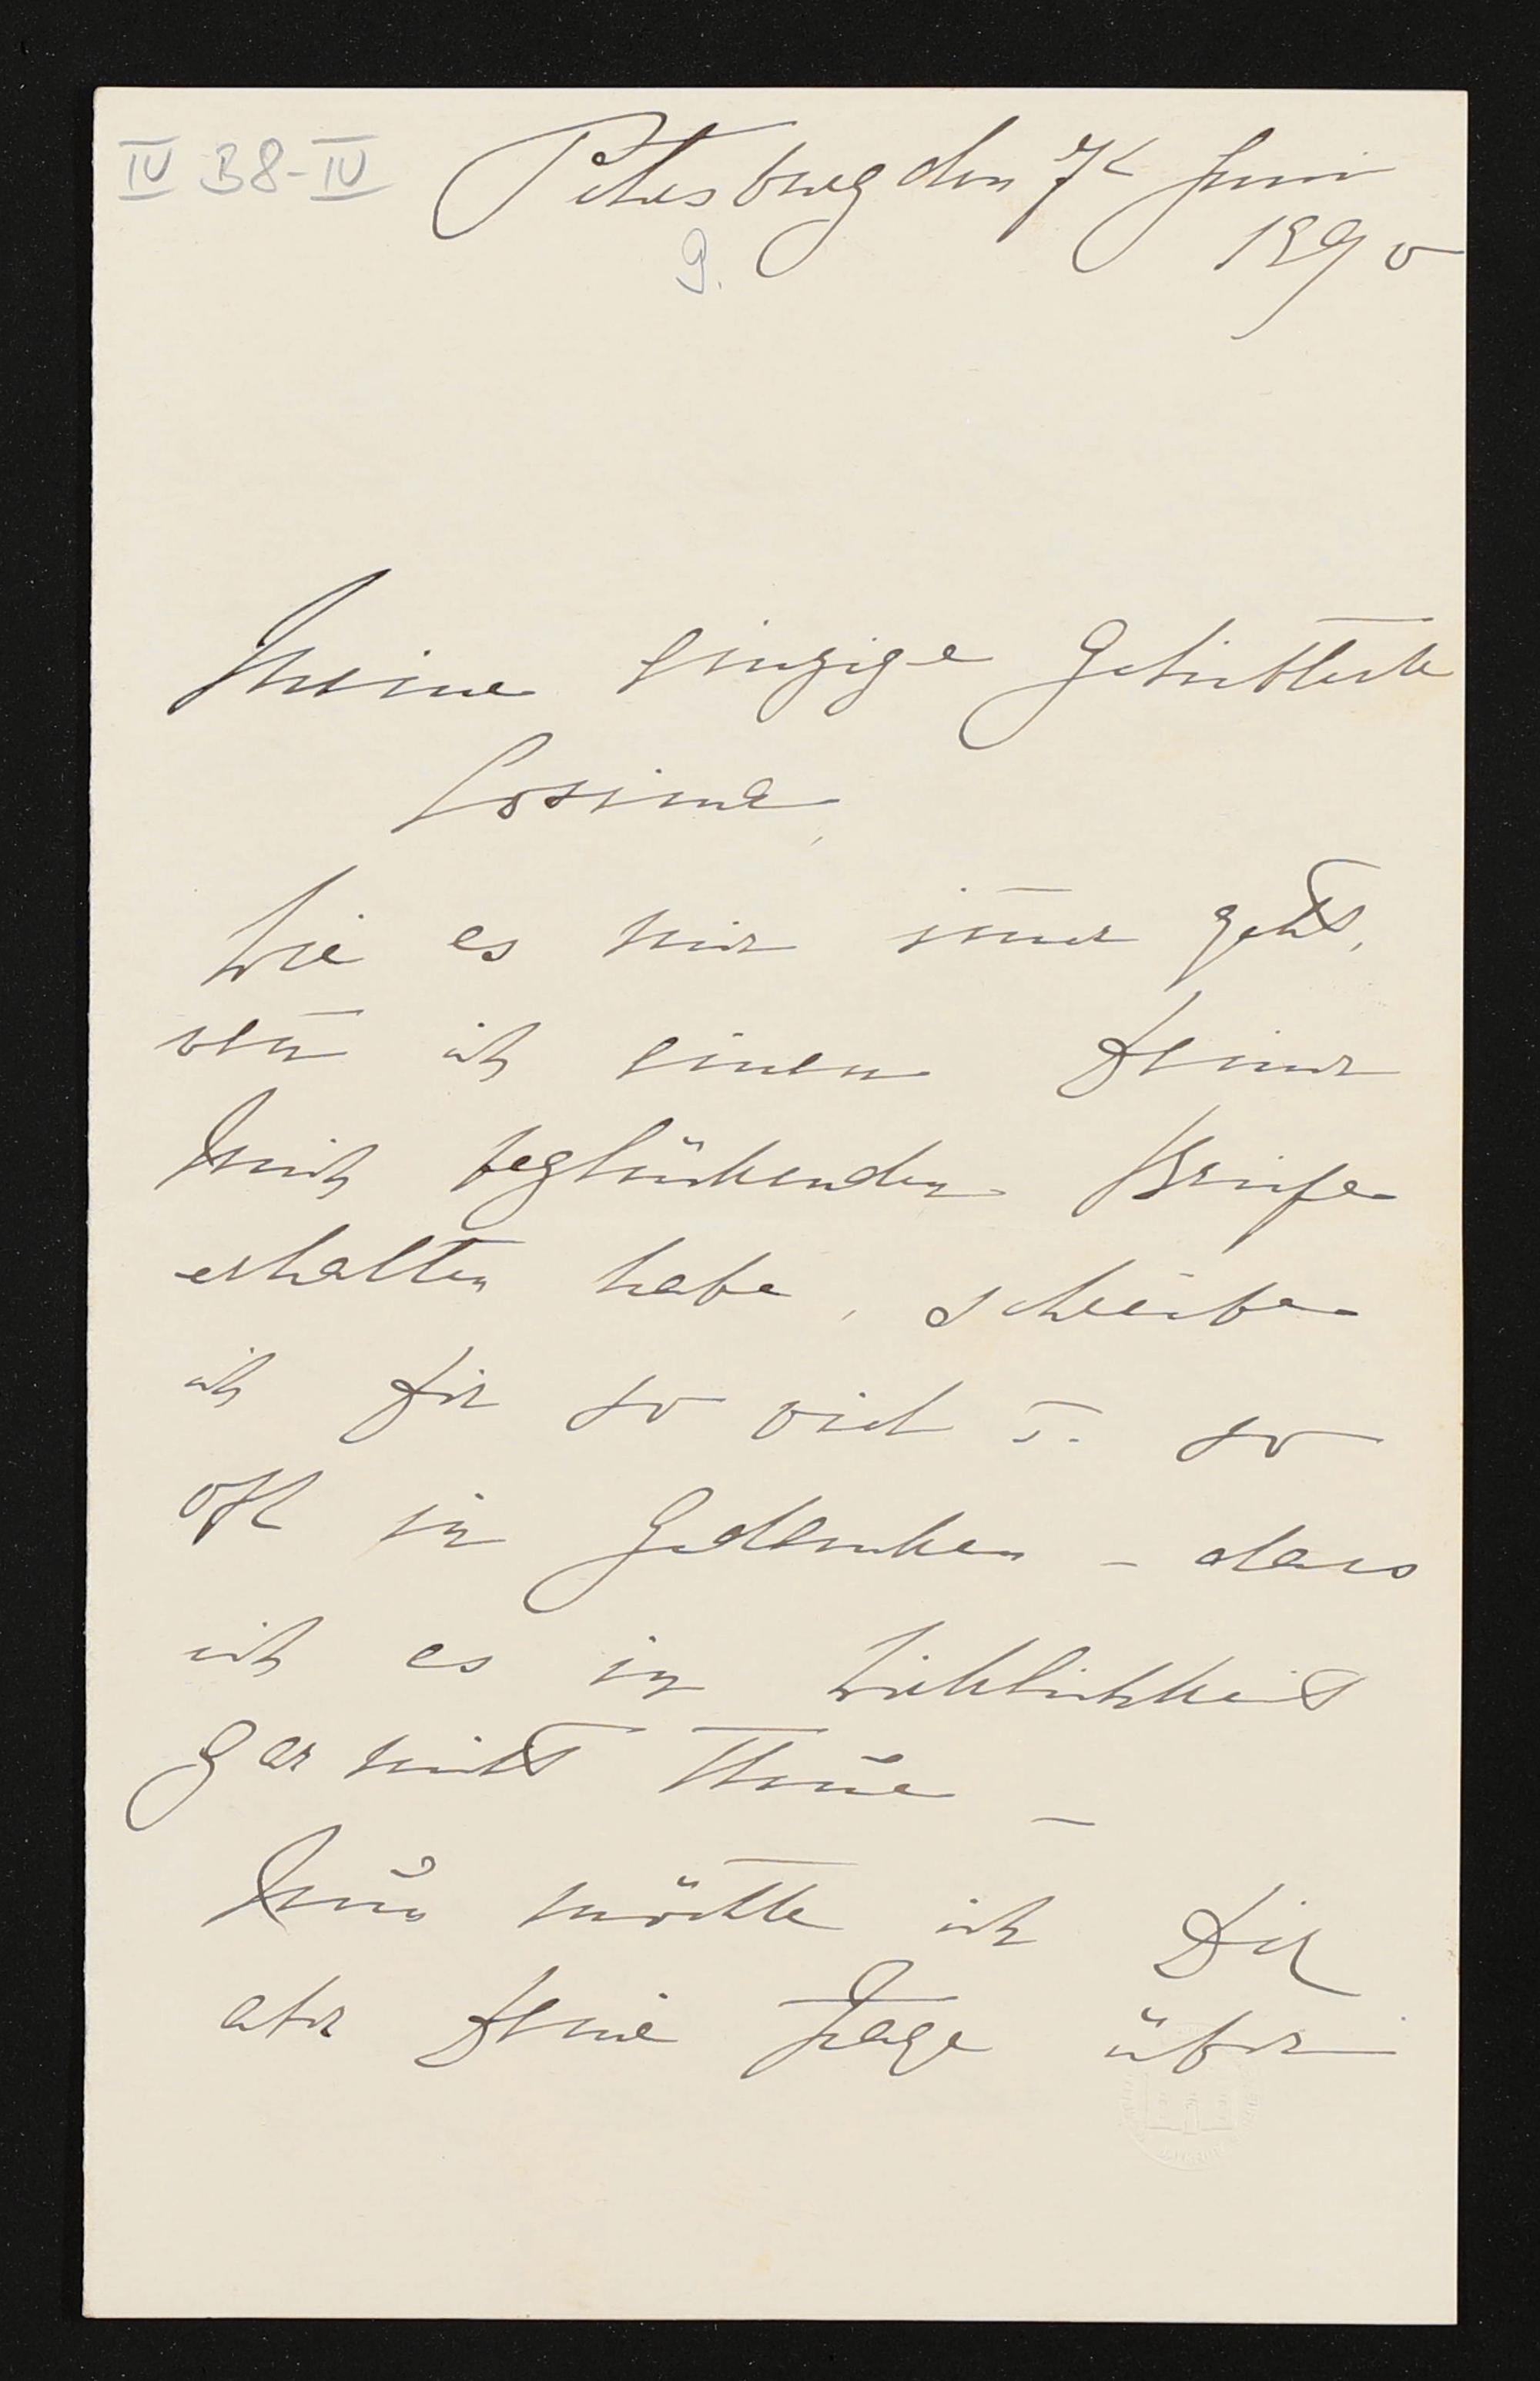 IV B8-IV Petersburg den 7t Juni
9. 1890
Meine einzige Geliebteste
Cosima,
Wie es mir im̄er geht,
wen̄ ich einen Deiner
mich beglückenden Briefe
erhalten habe, schreibe
ich Dir so viel u. so
oft in Gedanken – dass
ich es in Wirklichkeit
gar nicht thue –
Nun möchte ich Dir
aber Deine Frage über